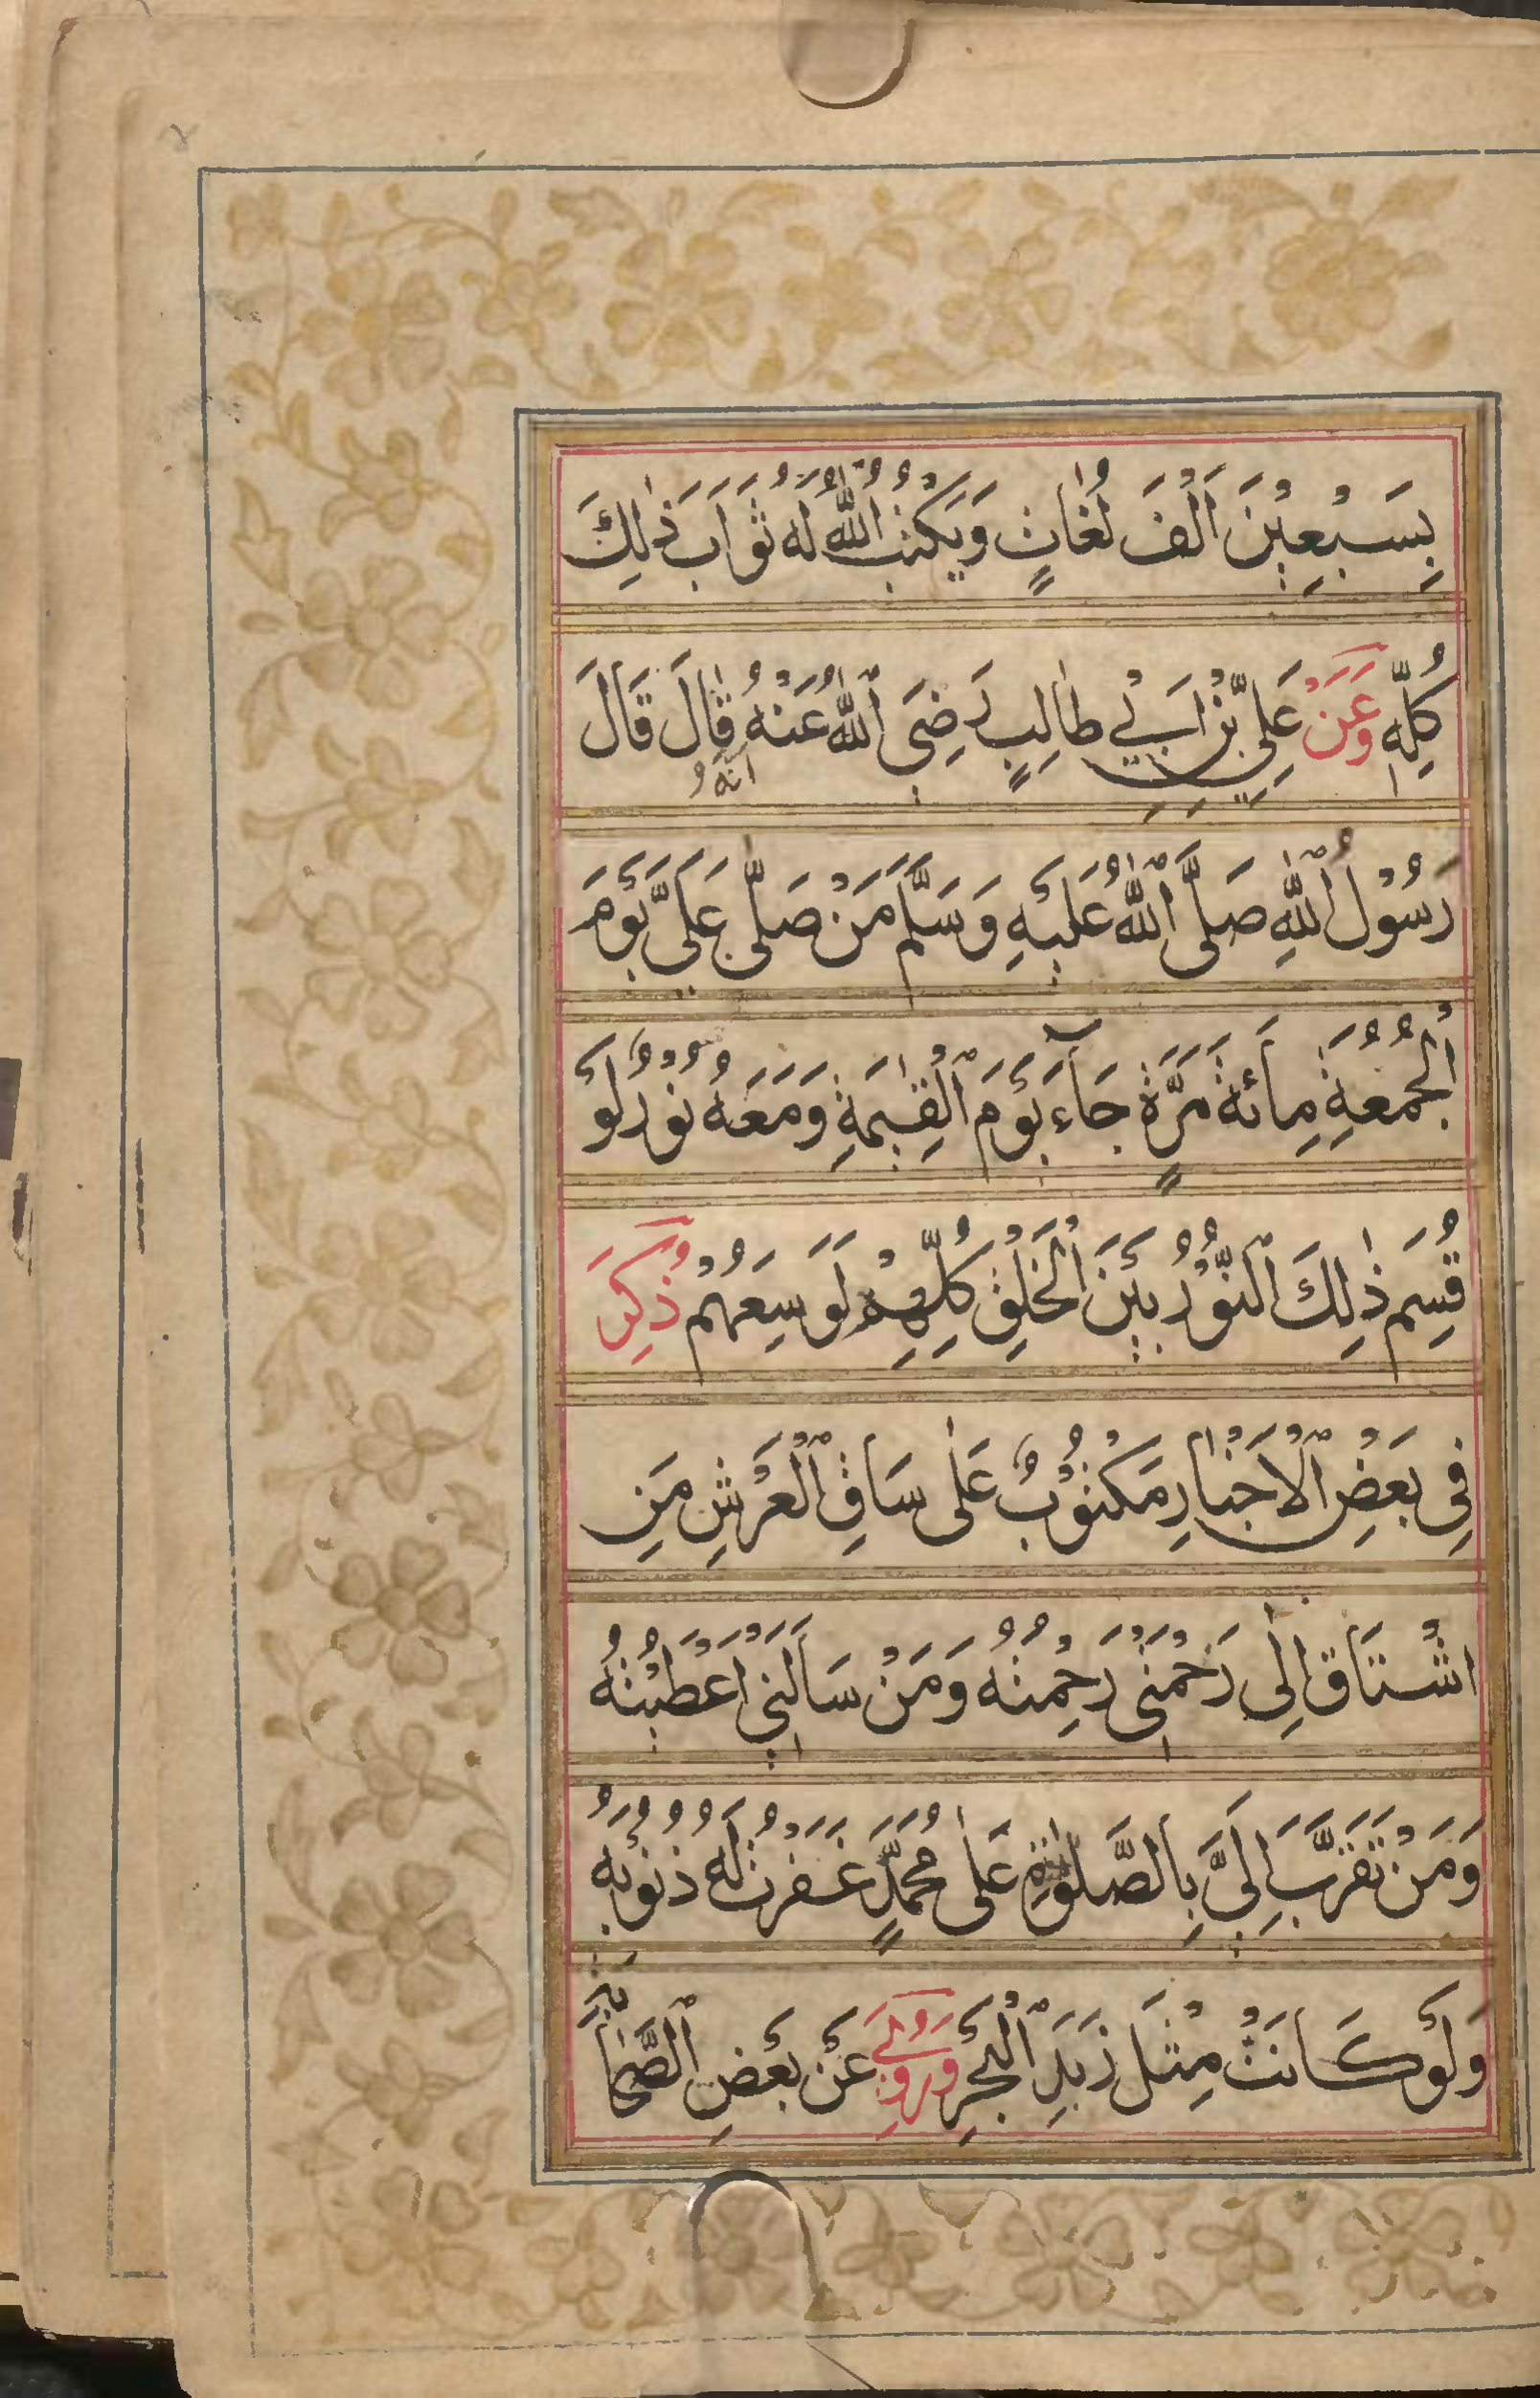 بِسَبْعِيْنَ اَلْفَ لُغَاتٍ وَيَكْتُبُ اللّٰهُ لَهُ ثَوَابَ ذٰلِكَ
كُلِّهٖ وَعَنْ عَلِيِّ بْنِ اَبِيْ طَالِبٍ رَضِيَ اللّٰهُ عَنْهُ اَنَّهُ قَالَ قَالَ
رَسُوْلُ اللّٰهِ صَلَّى اللّٰهُ عَلَيْهِ وَسَلَّمَ مَنْ صَلّٰى عَلَيَّ يَوْمَ
الْجُمُعَةِ مِائَةَ مَرَّةٍ جَآءَ يَوْمَ الْقِيٰمَةِ وَمَعَهُ نُوْرٌ لَوْ
قُسِمَ ذٰلِكَ النُّوْرُ بَيْنَ الْخَلْقِ كُلِّهِمْ لَوَسِعَهُمْ ذُكِرَ
فِي بَعْضِ الْاَخْبَارِ مَكْتُوْبٌ عَلٰى سَاقِ الْعَرْشِ مَنِ
اشْتَاقَ اِلٰى رَحْمَتِيْ رَحِمْتُهُ وَمَنْ سَاَلَنِيْ اَعْطَيْتُهُ
وَمَنْ تَقَرَّبَ اِلَيَّ بِالصَّلٰوةِ عَلٰى مُحَمَّدٍ غَفَرْتُ لَهُ ذُنُوْبَهُ
وَلَوْ كَانَتْ مِثْلَ زَبَدِ الْبَحْرِ وَرُوِيَ عَنْ بَعْضِ الصَّحَابَةِ